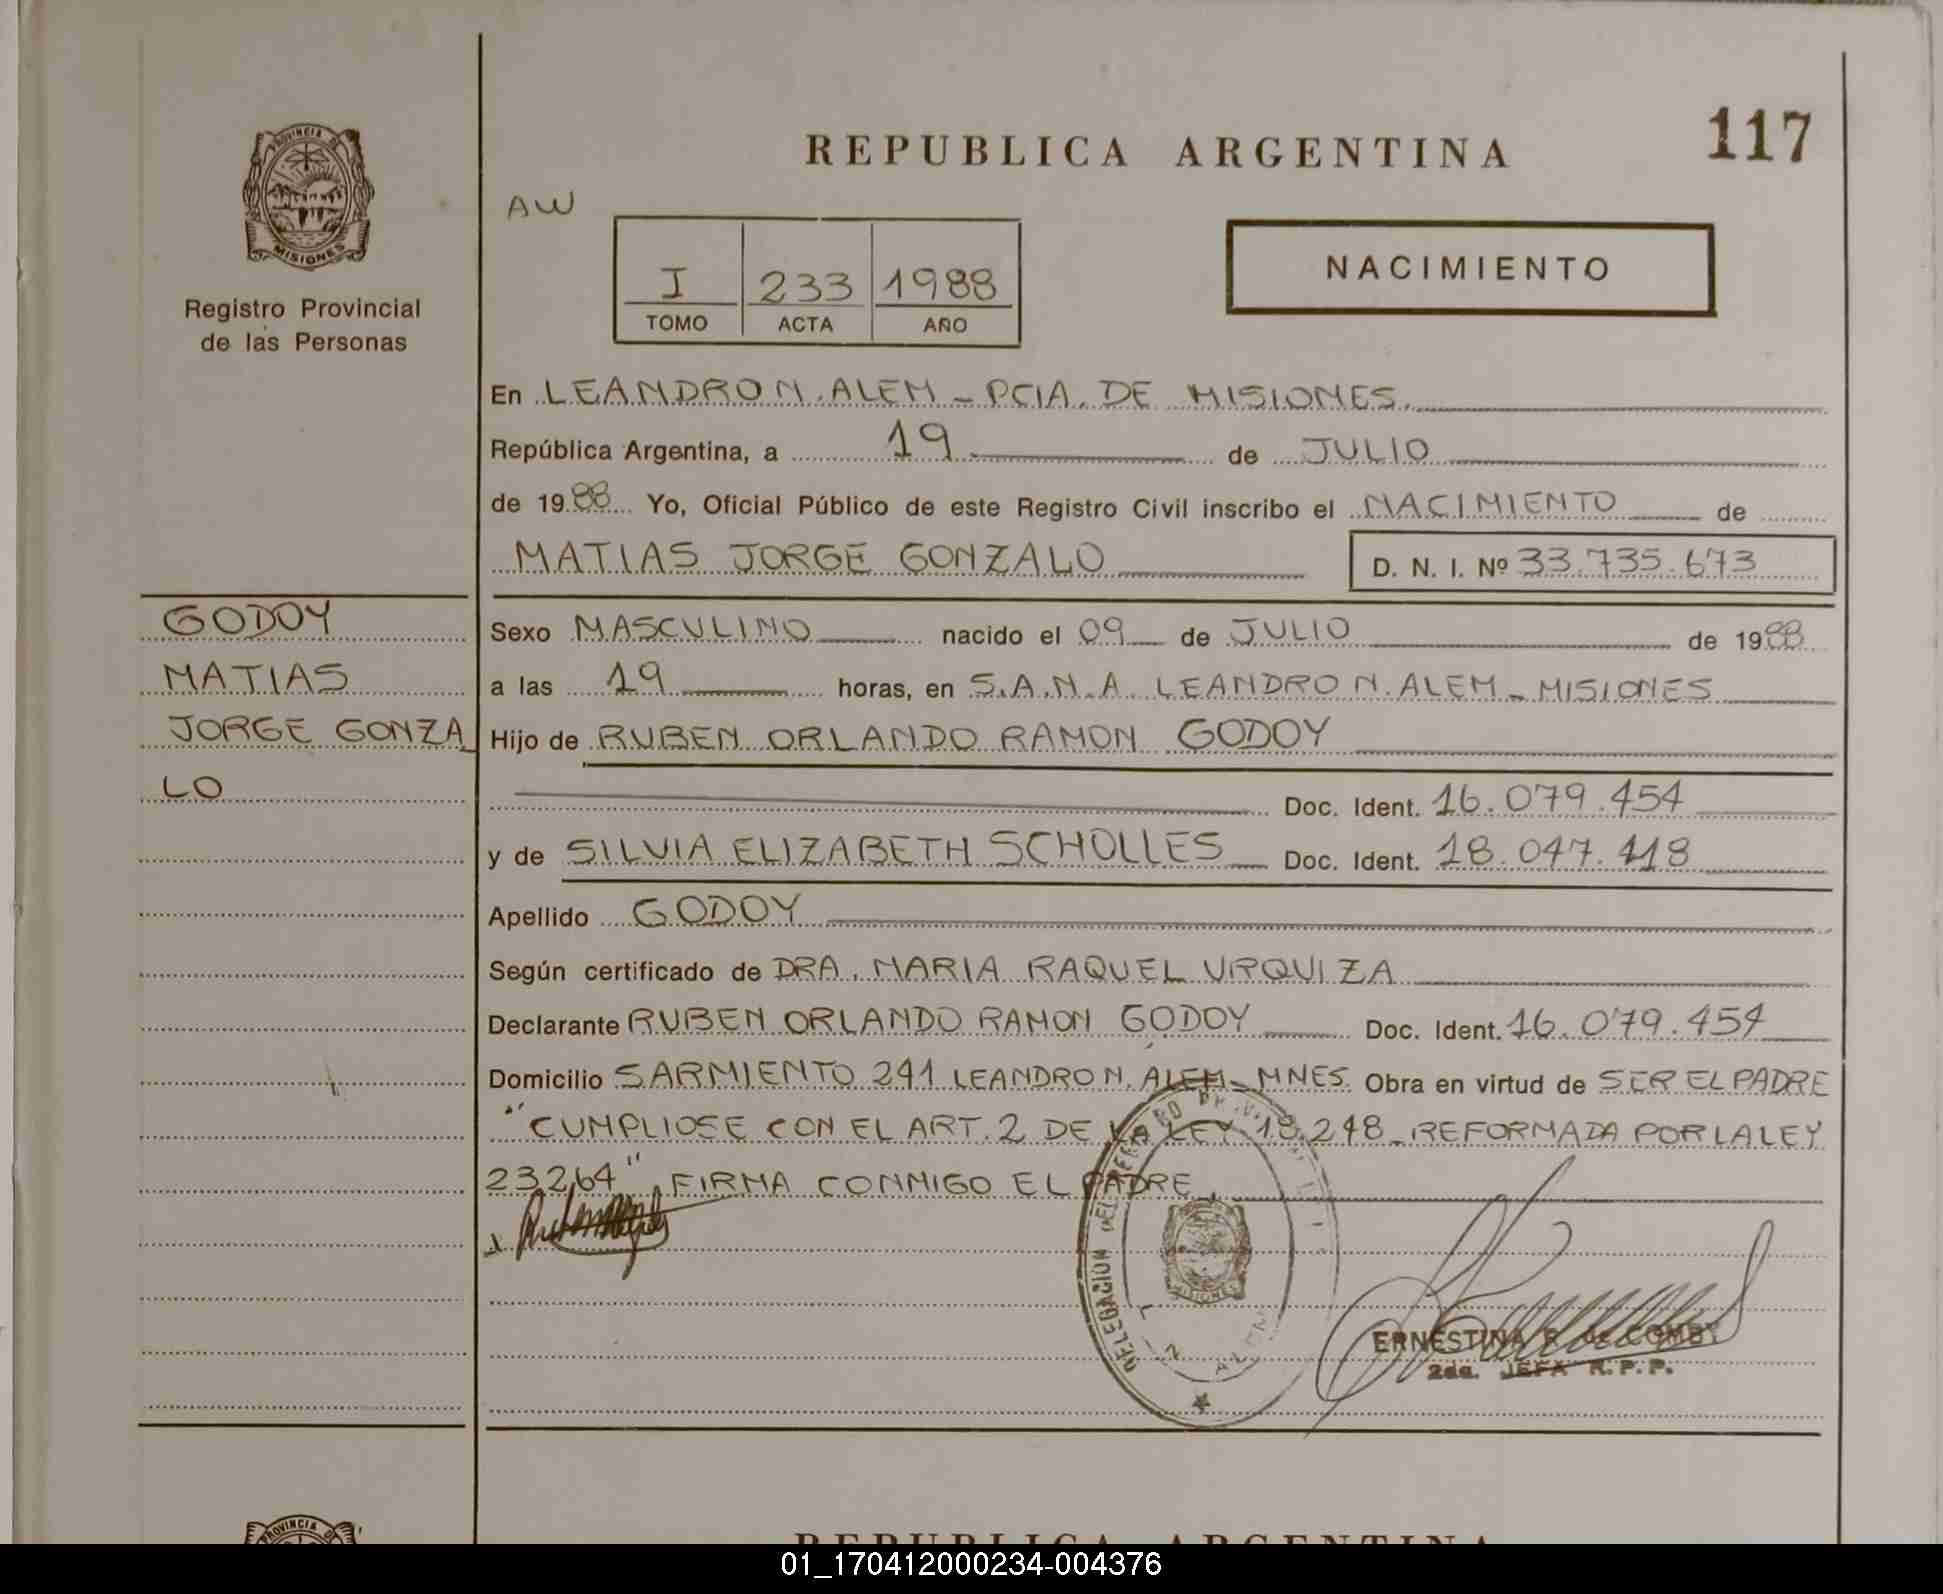 PROVINCIA DE
MISIONES
Registro Provincial
de las Personas
REPUBLICA ARGENTINA
117
AW
I 233 1988
TOMO ACTA AÑO
NACIMIENTO
En LEANDRO N. ALEM - PCIA. DE MISIONES.
República Argentina, a 19 de JULIO
de 1988 Yo, Oficial Público de este Registro Civil inscribo el NACIMIENTO de
MATIAS JORGE GONZALO D. N. I. Nº 33.735.673
GODOY
MATIAS
JORGE GONZA_
LO
Sexo MASCULINO nacido el 09 de JULIO de 1988
a las 19 horas, en S.A.M.A. LEANDRO N. ALEM - MISIONES
Hijo de RUBEN ORLANDO RAMON GODOY
Doc. Ident. 16.079.454
y de SILVIA ELIZABETH SCHOLLES Doc. Ident. 18.047.418
Apellido GODOY
Según certificado de DRA. MARIA RAQUEL URQUIZA
Declarante RUBEN ORLANDO RAMON GODOY Doc. Ident. 16.079.454
Domicilio SARMIENTO 241 LEANDRO N. ALEM - MNES. Obra en virtud de SER EL PADRE
"CUMPLIOSE CON EL ART. 2 DE LA LEY 18.248 - REFORMADA POR LA LEY
23264" FIRMA CONMIGO EL PADRE
DELEGACION DEL REGISTRO PROVINCIAL
MISIONES
ALEM
ERNESTINA R. de COMBY
2da. JEFA R.P.P.
PROVINCIA DE
REPUBLICA ARGENTINA
01_170412000234-004376